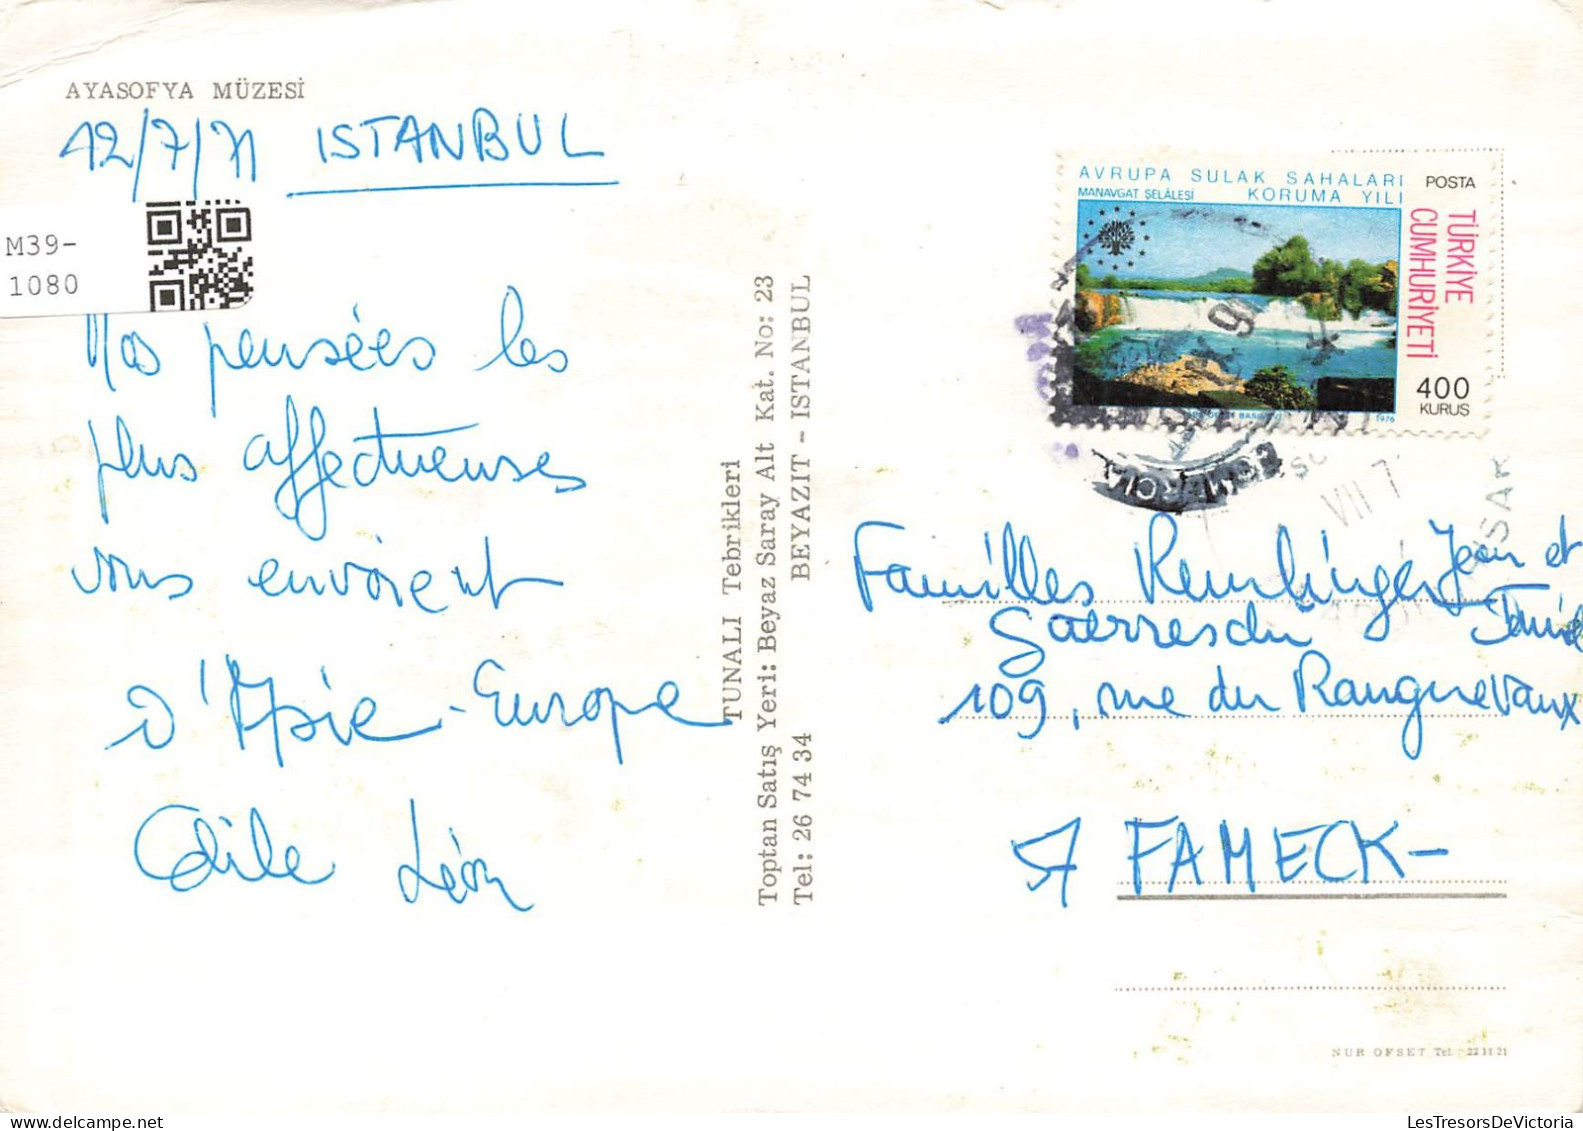 AYASOFYA MÜZESİ
12/7/71 ISTANBUL
M39-
1080
Nos pensées les
plus affectueuses
vous envoient
d'Asie-Europe
Odile Léon
TUNALI Tebrikleri
Toptan Satış Yeri: Beyaz Saray Alt Kat. No: 23
Tel: 26 74 34 BEYAZIT - ISTANBUL
AVRUPA SULAK SAHALARI
KORUMA YILI
MANAVGAT ŞELÂLESİ
POSTA
TÜRKİYE
CUMHURİYETİ
400
KURUS
1976
VII 7
Familles Jean et
109, rue du Ranguevaux
FAMECK-
NUR OFSET Tel: 22 11 21
LesTresorsDeVictoria